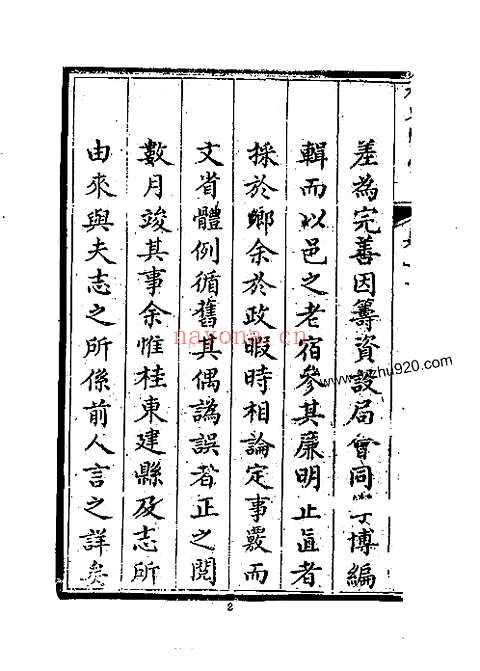 差為完善因籌資設局會同學博編
輯而以邑之老宿參其廉明正直者
採於鄉余於政暇時相論定事覈而
文省體例循舊其偶譌誤者正之閱
數月竣其事余惟桂東建縣及志所
由來與夫志之所係前人言之詳矣
nayona.cn
2